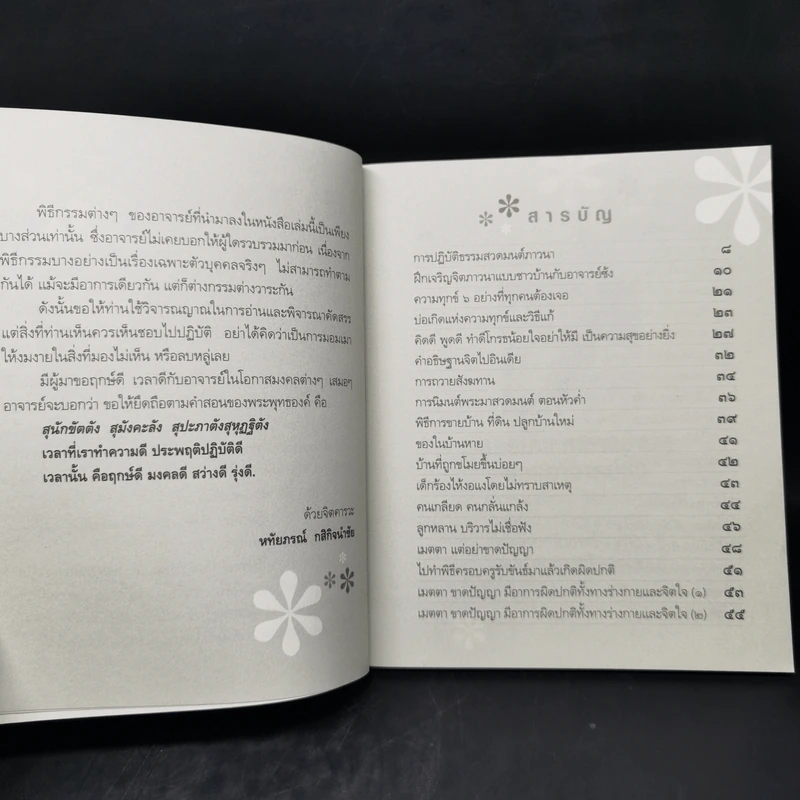 พิธีกรรมต่างๆ ของอาจารย์ที่นำมาลงในหนังสือเล่มนี้เป็นเพียง
บางส่วนเท่านั้น ซึ่งอาจารย์ไม่เคยบอกให้ผู้ใดรวบรวมมาก่อน เนื่องจาก
พิธีกรรมบางอย่างเป็นเรื่องเฉพาะตัวบุคคลจริงๆ ไม่สามารถทำตาม
กันได้ แม้จะมีอาการเดียวกัน แต่ก็ต่างกรรมต่างวาระกัน
ดังนั้นขอให้ท่านใช้วิจารณญาณในการอ่านและพิจารณาคัดสรร
แต่สิ่งที่ท่านเห็นควรเห็นชอบไปปฏิบัติ อย่าได้คิดว่าเป็นการมอมเมา
ให้งมงายในสิ่งที่มองไม่เห็น หรือลบหลู่เลย
มีผู้มาขอฤกษ์ดี เวลาดีกับอาจารย์ในโอกาสมงคลต่างๆ เสมอๆ
อาจารย์จะบอกว่า ขอให้ยึดถือตามคำสอนของพระพุทธองค์ คือ
สุนักขัตตัง สุมังคะลัง สุปะภาตังสุหุฏฐิตัง
เวลาที่เราทำความดี ประพฤติปฏิบัติดี
เวลานั้น คือฤกษ์ดี มงคลดี สว่างดี รุ่งดี.
ด้วยจิตคารวะ
หทัยภรณ์ กสิกิจนำชัย
สารบัญ
การปฏิบัติธรรมสวดมนต์ภาวนา ๘
ฝึกเจริญจิตภาวนาแบบชาวบ้านกับอาจารย์ซ้ง ๑๐
ความทุกข์ ๖ อย่างที่ทุกคนต้องเจอ ๒๑
บ่อเกิดแห่งความทุกข์และวิธีแก้ ๒๓
คิดดี พูดดี ทำดีโกรธน้อยใจอย่าให้มี เป็นความสุขอย่างยิ่ง ๒๗
คำอธิษฐานจิตไปอินเดีย ๓๒
การถวายสังฆทาน ๓๔
การนิมนต์พระมาสวดมนต์ ตอนหัวค่ำ ๓๖
พิธีการขายบ้าน ที่ดิน ปลูกบ้านใหม่ ๓๙
ของในบ้านหาย ๔๑
บ้านที่ถูกขโมยขึ้นบ่อยๆ ๔๒
เด็กร้องไห้งอแงโดยไม่ทราบสาเหตุ ๔๓
คนเกลียด คนกลั่นแกล้ง ๔๔
ลูกหลาน บริวารไม่เชื่อฟัง ๔๖
เมตตา แต่อย่าขาดปัญญา ๔๘
ไปทำพิธีครอบครูรับขันธ์มาแล้วเกิดผิดปกติ ๕๑
เมตตา ขาดปัญญา มีอาการผิดปกติทั้งทางร่างกายและจิตใจ (๑) ๕๓
เมตตา ขาดปัญญา มีอาการผิดปกติทั้งทางร่างกายและจิตใจ (๒) ๕๕